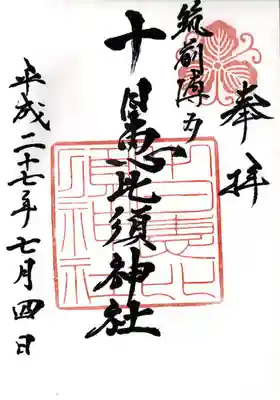 奉拝
筑前博多
十日恵比須神社
平成二十七年七月四日